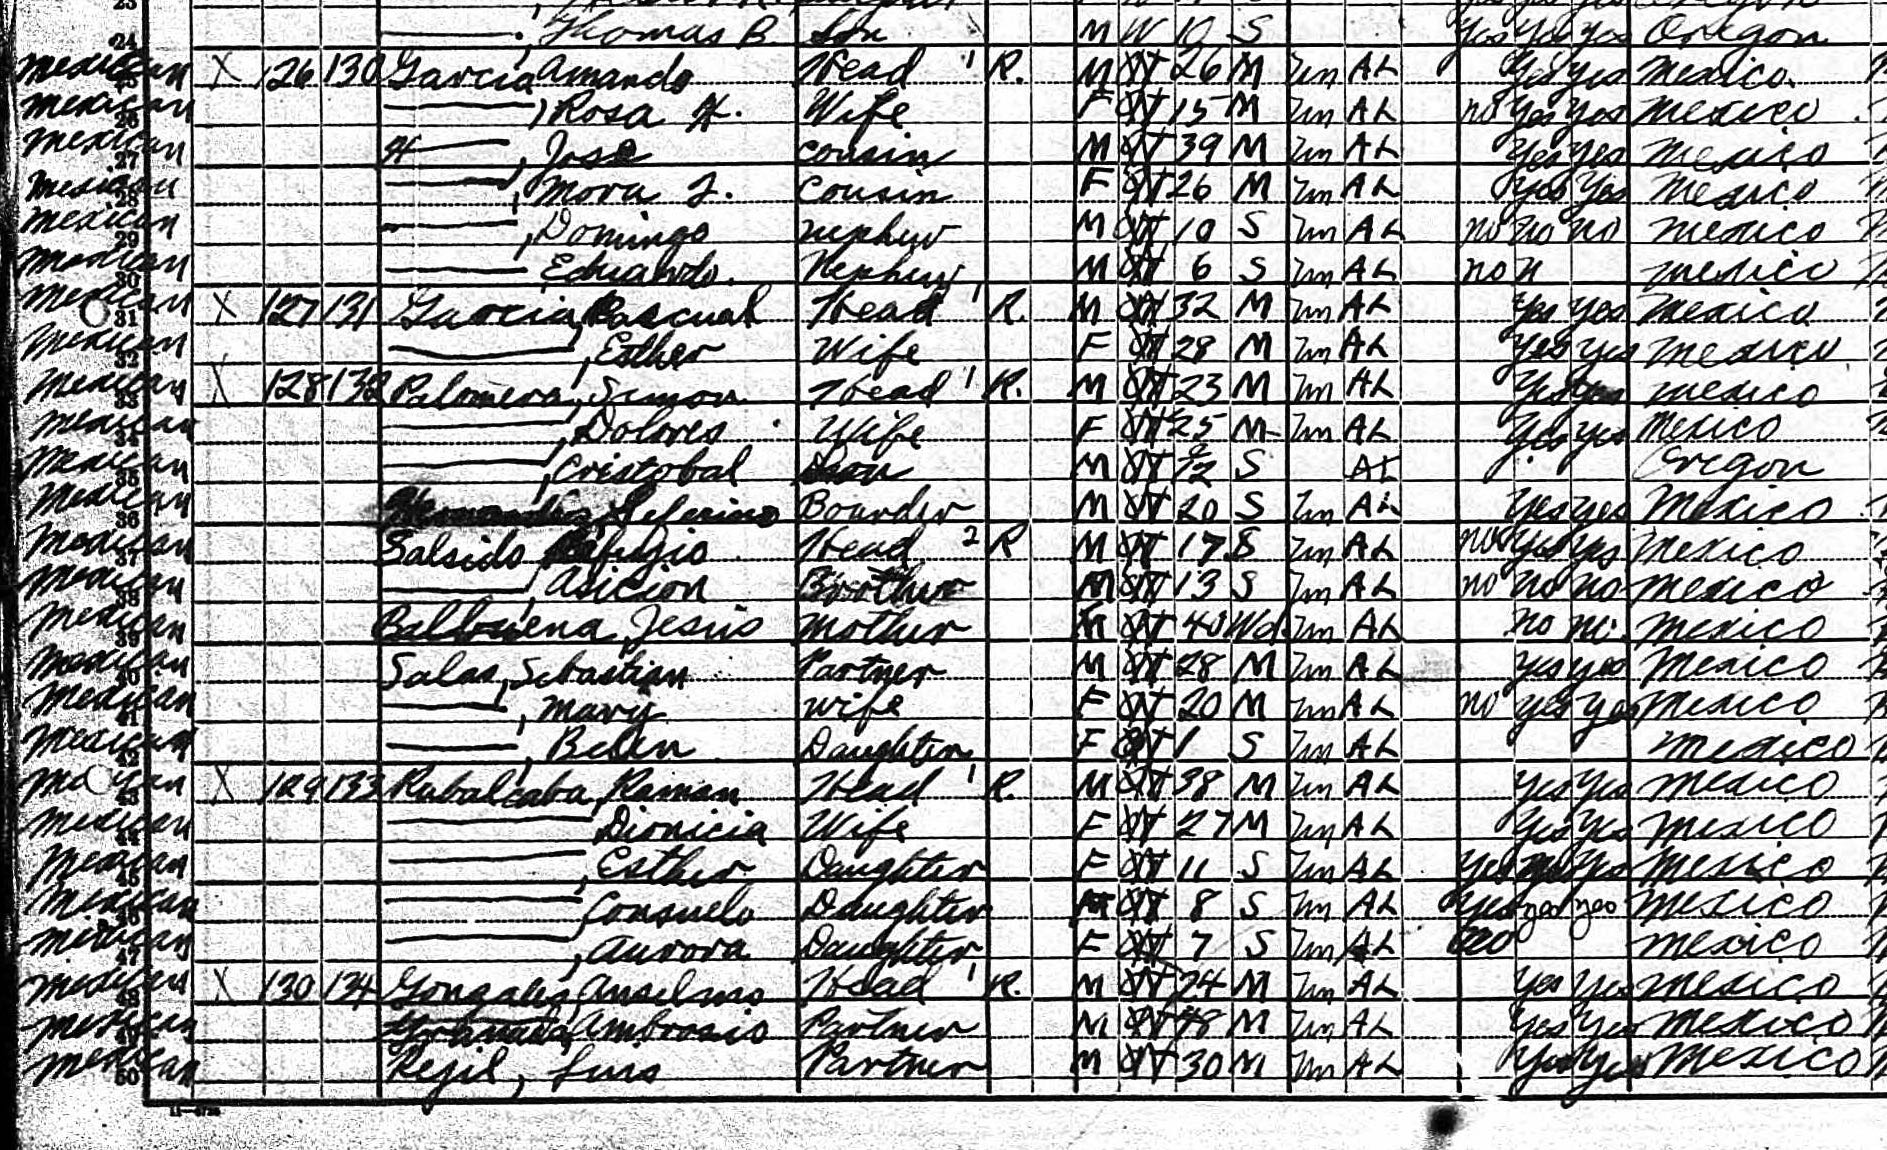 Thomas B. Son M W 10 S Yes Yes yes Oregon
Mexican X 126 130 Garcia Amando Head 1 R. M 26 M Un AL Yes yes Mexico
Mexican 26 —, Rosa H. Wife F 15 M Un AL no Yes Yes Mexico
Mexican 27 H —, Jose Cousin M 39 M Un AL Yes Yes Mexico
Mexican 28 —, Mora F. Cousin F 26 M Un AL Yes Yes Mexico
Mexican 29 —, Domingo nephew M 10 S Un AL no no no Mexico
Mexican 30 — Eduardo. Nephew M 6 S Un AL no n Mexico
Mexican 31 X 127 131 Garcia, Pascual Head 1 R. M 32 M Un AL Yes Yes Mexico
Mexican 32 —, Esther Wife F 28 M Un AL Yes Yes Mexico
Mexican 33 X 128 132 Palomera, Simon Head 1 R. M 23 M Un AL Yes yes Mexico
Mexican 34 —, Dolores Wife F 25 M Un AL Yes yes Mexico
Mexican 35 —, Cristobal Son M S AL Oregon
Mexican 36 Seferino Boarder M 20 S Un AL Yes yes Mexico
Mexican 37 Salsido Refugio Head 2 R M 17 S Un AL no Yes Yes Mexico
Mexican 38 —, Asicion Brother M 13 S Un AL no no no Mexico
Mexican 39 Balbuena, Jesus Mother 40 Wd. Un AL no no. Mexico
Mexican 40 Salas, Sebastian Partner M 28 M Un AL yes yes Mexico
Mexican 41 —, Mary Wife F 20 M Un AL no yes yes Mexico
Mexican 42 —, Belen Daughter F 1 S Un AL Mexico
43 X 129 133 Rubalcaba, Raman Head 1 R. M 38 M Un AL Yes Yes Mexico
Mexican 44 — Dionicia Wife F 27 M Un AL Yes Yes Mexico
Mexican 45 —, Esther Daughter F 11 S Un AL Yes Yes Mexico
Mexican 46 — Consuelo Daughter 8 S Un AL Yes yes yes Mexico
Mexican 47 —, Aurora Daughter F 7 S Un AL no Mexico
Mexican 48 X 130 134 Gonzales, Anselmo Head 1 R. M 24 M Un AL Yes Yes Mexico
Mexican Ambrosio Partner M 48 M Un AL Yes Yes Mexico
Mexican 50 Rejil, Luis Partner M 30 M Un AL Yes Yes Mexico